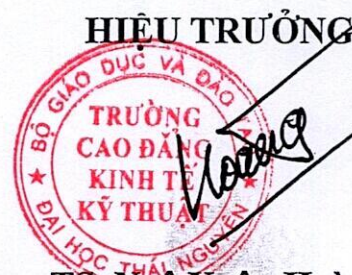 HIỆU TRƯỞNG
BỘ GIÁO DỤC VÀ ĐÀO
TRƯỜNG
CAO ĐẲNG
KINH TẾ
KỸ THUẬT
ĐẠI HỌC THÁI NGUYÊN